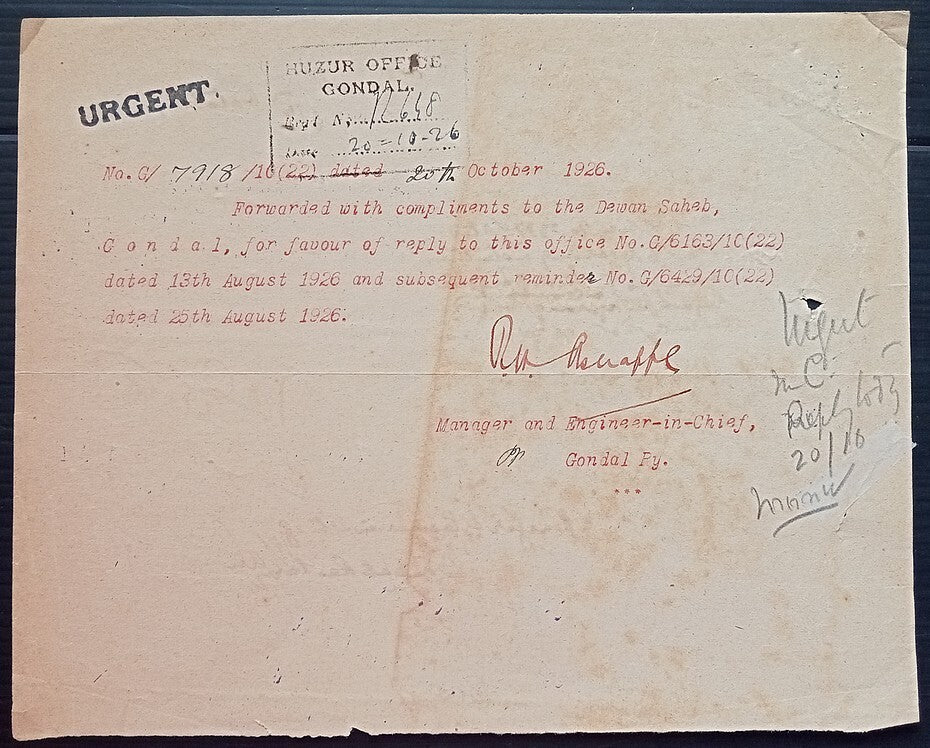 URGENT.
HUZUR OFFICE
GONDAL.
Regd. No. 12648
Date 20-10-26
No.G/ 7918 /10(22) dated 20th October 1926.
Forwarded with compliments to the Dewan Saheb,
G o n d a l, for favour of reply to this office No.G/6163/10(22)
dated 13th August 1926 and subsequent reminder No.G/6429/10(22)
dated 25th August 1926.
Manager and Engineer-in-Chief,
Gondal Ry.
***
Urgent
Reply today
20/10